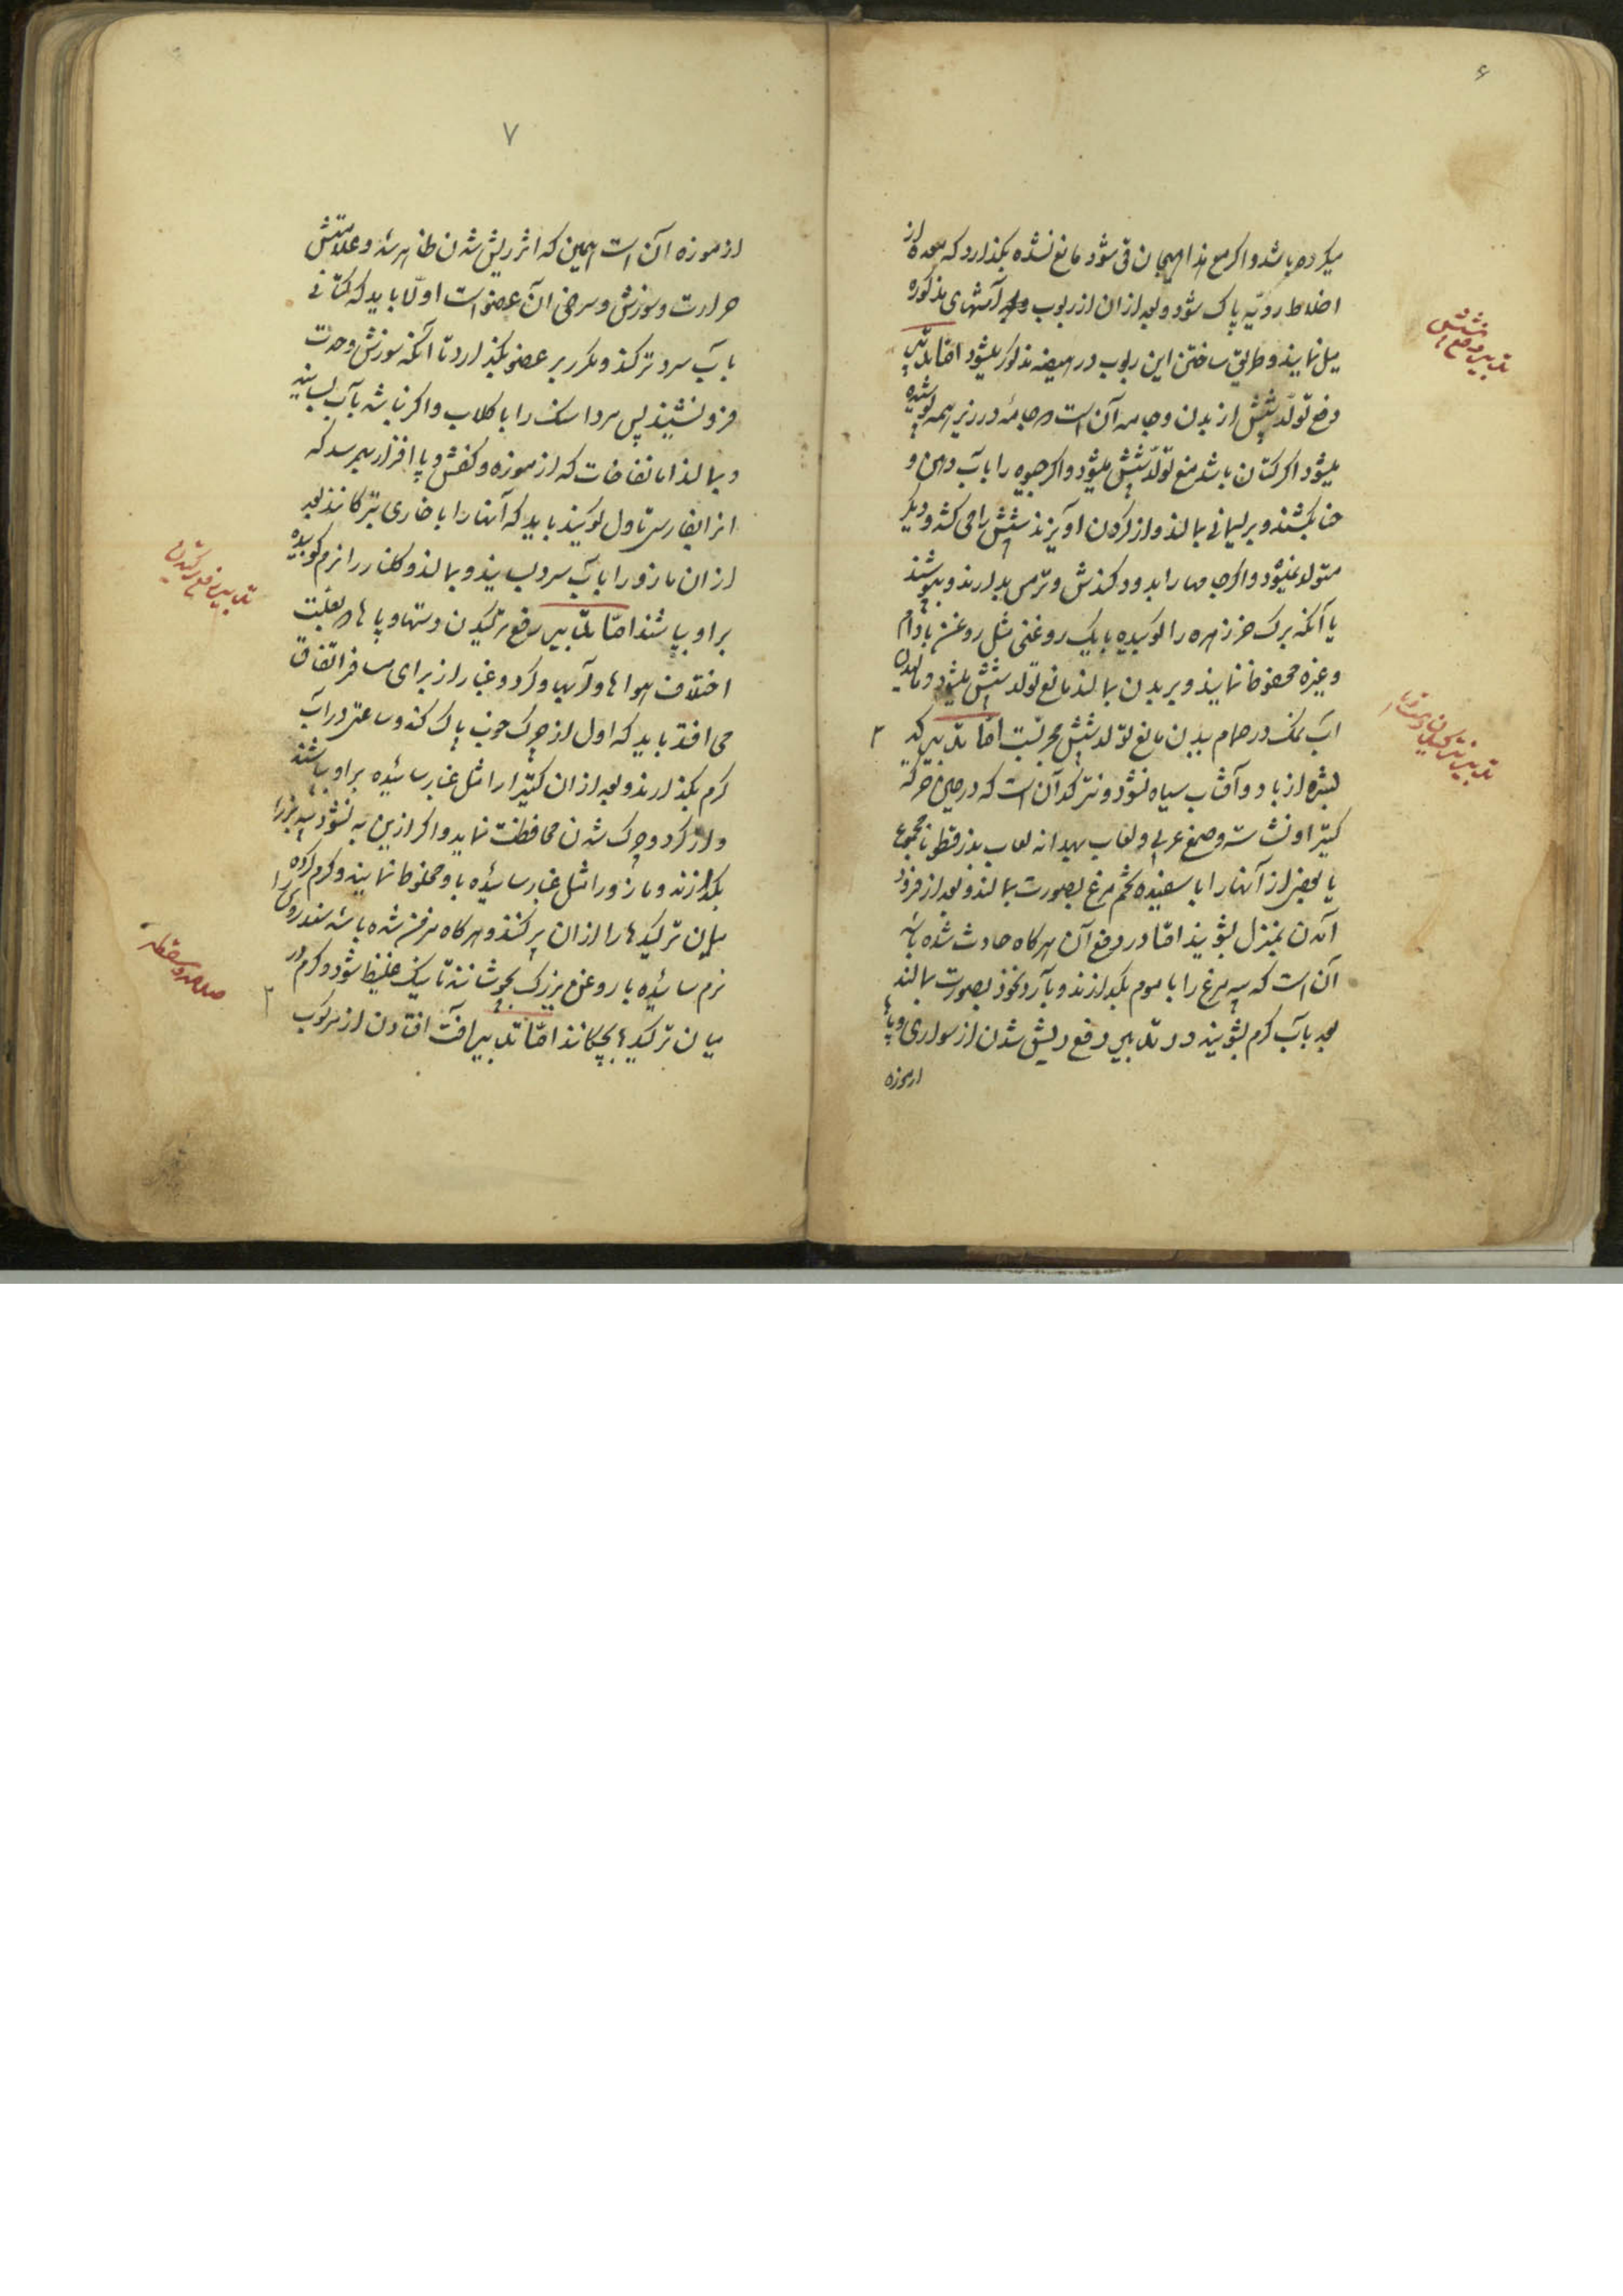 ۶
میکرده باشد و اکر مع هذا هیجان قی شود مانع نشده بکذارد که معده از
اخلاط ردیّه پاک شود و بعد ازان از ربوب و آشهای مذکوره
میل نمایند و طریق ساختن این ربوب در هیضه مذکور میشود امّا تدابیر
دفع تولّد شپش از بدن و جامه آن است و جامهٔ در زیر همه پوشیده
میشود اکر کتان باشد منع تولّد شپش میشود و اکر جیوه را بآب دهن و
حنا بکشند و بر لیسمانی بمالند و از کردن اویزند شپش را می کشد و دیکر
متولد نمیشود و اکر جامها را بدود کندش و ترمس بدارند و بپوشند
یا آنکه برک خرزهره را کوبیده بایک روغنی مثل روغن بادام
و غیره محفوظ نمایند و بر بدن بمالند مانع تولد شپش میشود و مالیدن
اب نمک در حمام ببدن مانع تولد شپش مجربست امّا تدبیر که
بشره از باد و آفتاب سیاه نشود و نترکد آن است که در حین حرکه
کتیرا و نشاسته و صمغ عربی و لعاب بهدانه لعاب بذرقطونا مجموع
یا بعضی از آنها را با سفیده تخم مرغ بصورت بمالند و بعد از فرود
آمدن بمنزل بشویند امّا در دفع آن هرکاه حادث شده باشد
آن است که پیه مرغ را با موم بکدازند و بآرد نخود بصورت بمالند
بعد بآب کرم بشویند و در تدابیر دفع ریش شدن از سواری و پا
ازموزه
تدبیر دفع شپش
۷
از موزه آن است همین که اثر ریش شدن ظاهر شد و علامتش
حرارت و سوزش و سرخی آن عضو است اولا باید که کتانی
بآب سرد تر کند و مکرر بر عضو بکذارد تا آنکه سوزش و حدت
فرو نشیند پس مرداسنک را با کلاب و اکر نباشد بآب بسایند
و بمالند اما نفاخات که از موزه و کفش و پا افزار بهمرسد که
انرا بفارسی تاول کویند باید که آنها را با خاری بترکانند بعد
ازان مازو را بآب سرد بسایند و بمالند و کلنار را نرم کوبیده
بر او بپاشند امّا تدابیر دفع ترکیدن دستها و پاها بعلت
اختلاف هواها و آبها و کرد و غبار از برای مسافر اتفاق
می افتد باید که اول از چرک خوب پاک کند و ساعتی در آب
کرم بکذارند و بعد ازان کتیرا را مثل غبار سائیده بر او بپاشند
و از کرد و چرک شدن محافظت نماید و اکر ازین به نشود پیه بز را
بکدازند و مازو را مثل غبار سائیده با و مخلوط نمایند و کرم کرده
میان ترکیدها را ازان پر کنند و هرکاه مزمن شده باشد سندروس را
نرم سائیده با روغن بزرک بجوشانند تا نیک غلیظ شود و کرم در
میان ترکیدها بچکانند امّا تدابیر آفت افتادن از مرکوب
تدبیر دفع ترکیدن
صدمه و سقطه